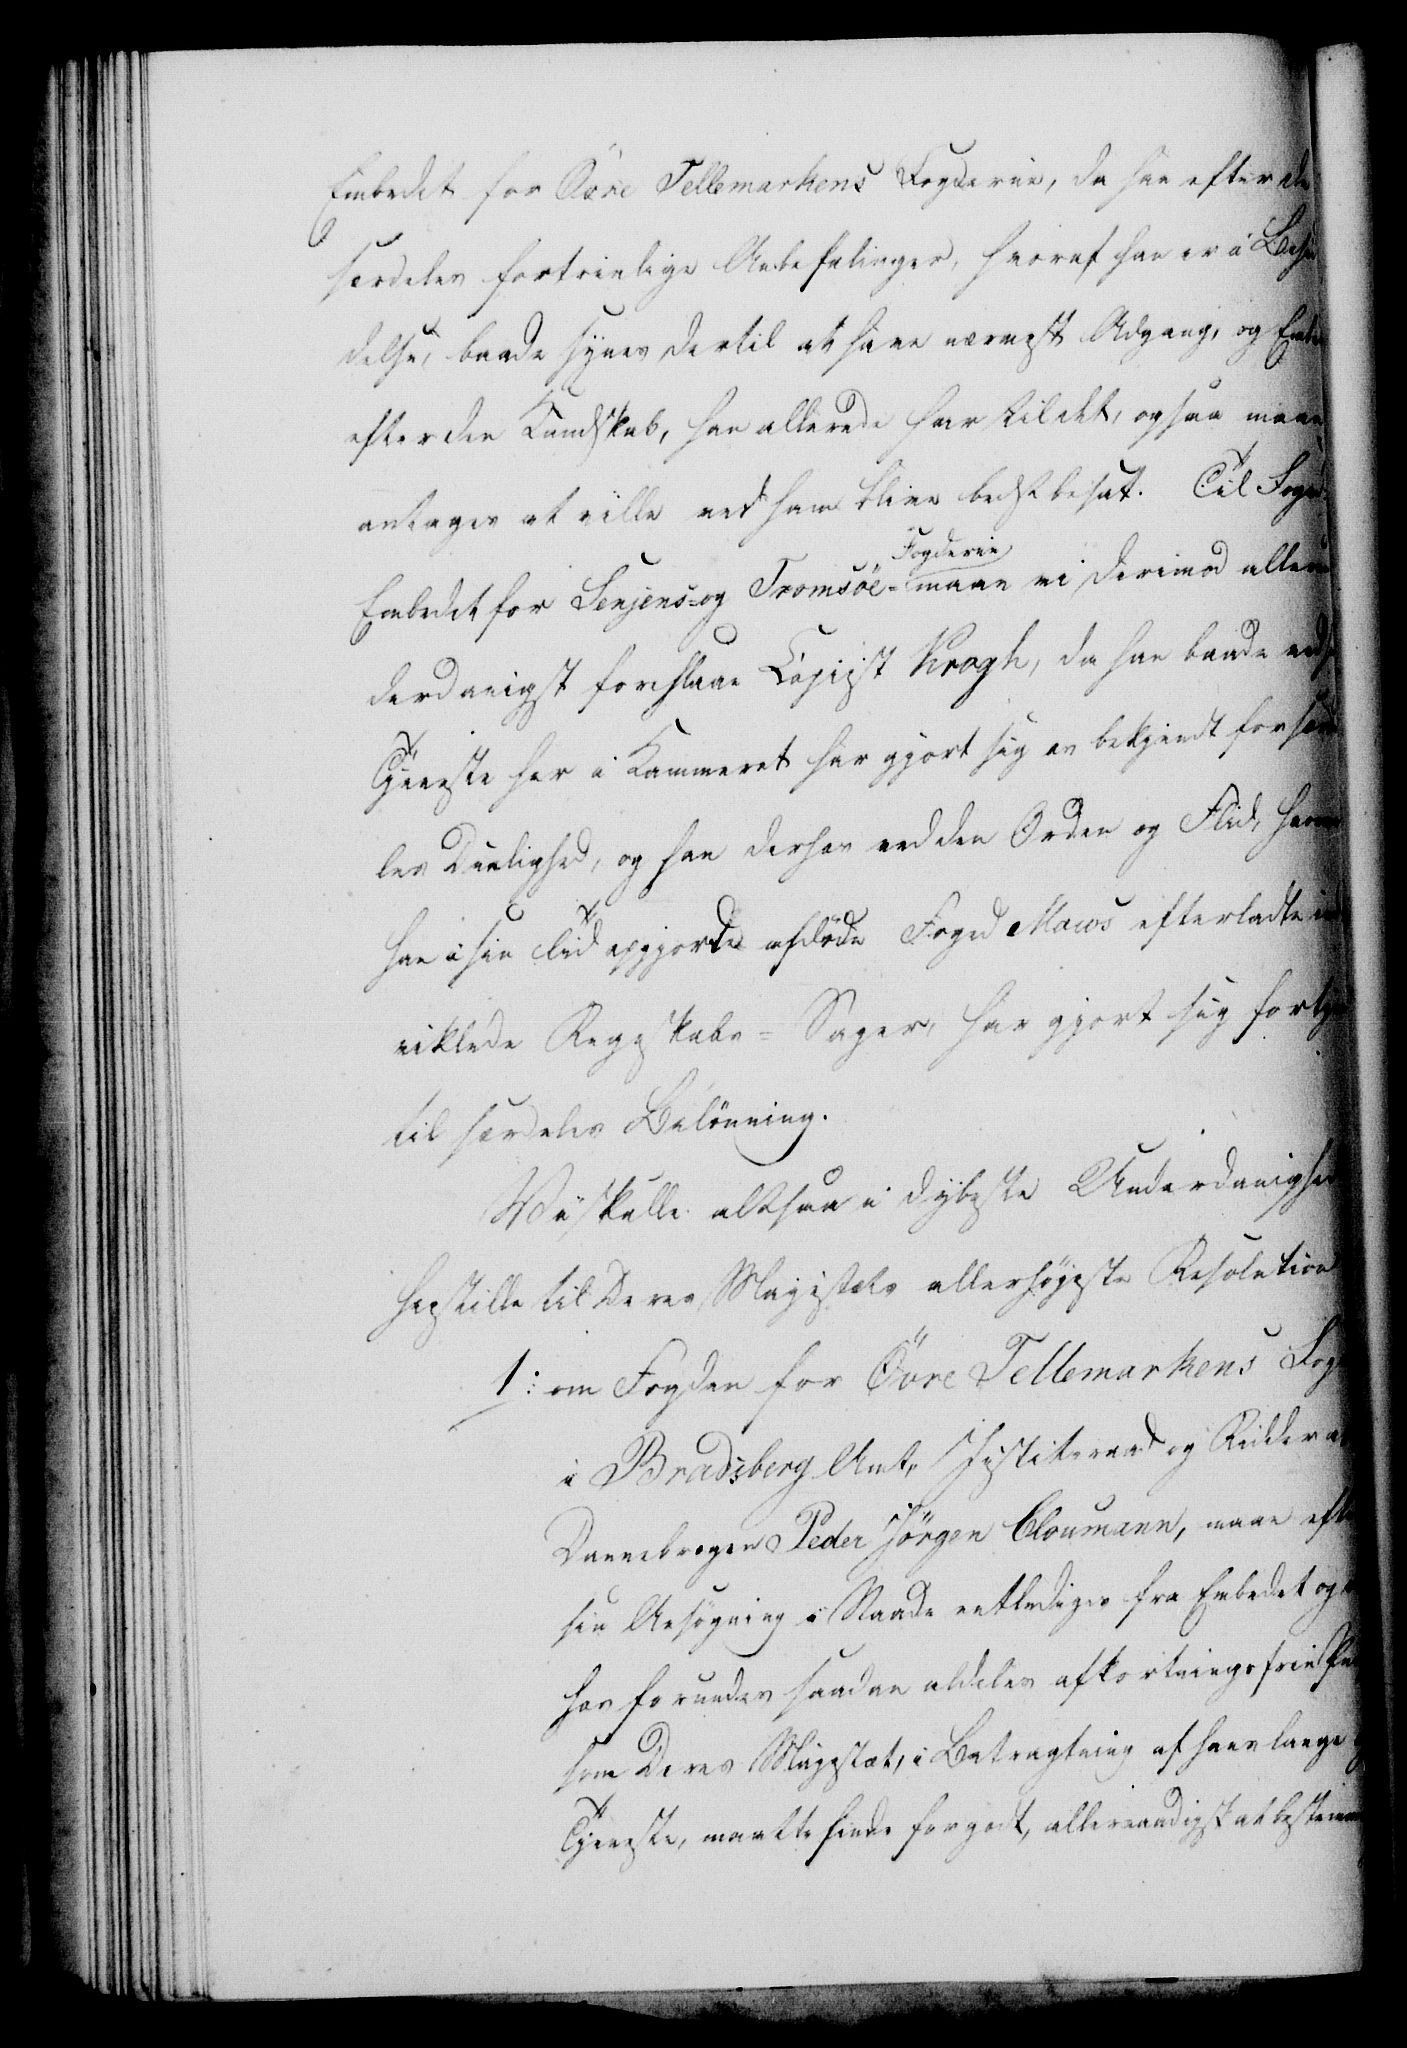 Embedet for Övre Tellemarkens Fogderie, da han efter de
særdeles fortrinlige Anbefalinger, hvoraf han er i Besid
delse, baade synes dertil at have nærmest Adgang, og Embe
efter den Kundskab, han allerede har til det, ogsaa maae
antages at ville ved ham blive bedst besat. Til Foged-
Fogderie
Embedet for Senjens- og Tromsöe- maae vi derimod allerun
derdanigst foreslaae Copiist Krogh, da han baade ved s
Tjeneste her i Kammeret har gjort sig os bekjendt for særde
les Duelighed, og han derhos ved den Orden og Flid, hvorm
han i sin Tid opgjorde afdöde Foged Maws efterladte ind
viklede Regnskabs- Sager, har gjort sig fortje
til særdeles Belönning.
Vi skulle altsaa i dybeste Underdanighed
henstille til Deres Majestæts allerhöjeste Resolution
1: om Fogden for Övre Tellemarkens Fog
i Bradsberg Amt, Justitsraad og Ridder a
Dannebrogen Peder Jörgen Cloumann, maae efte
sin Ansögning i Naade entlediges fra Embedet og
hos forundes saadan aldeles afkortningsfrie Pen
som Deres Majestæt, i Betragtning af hans lange
Tjeneste, maatte finde for godt, allernaadigst at bestemme